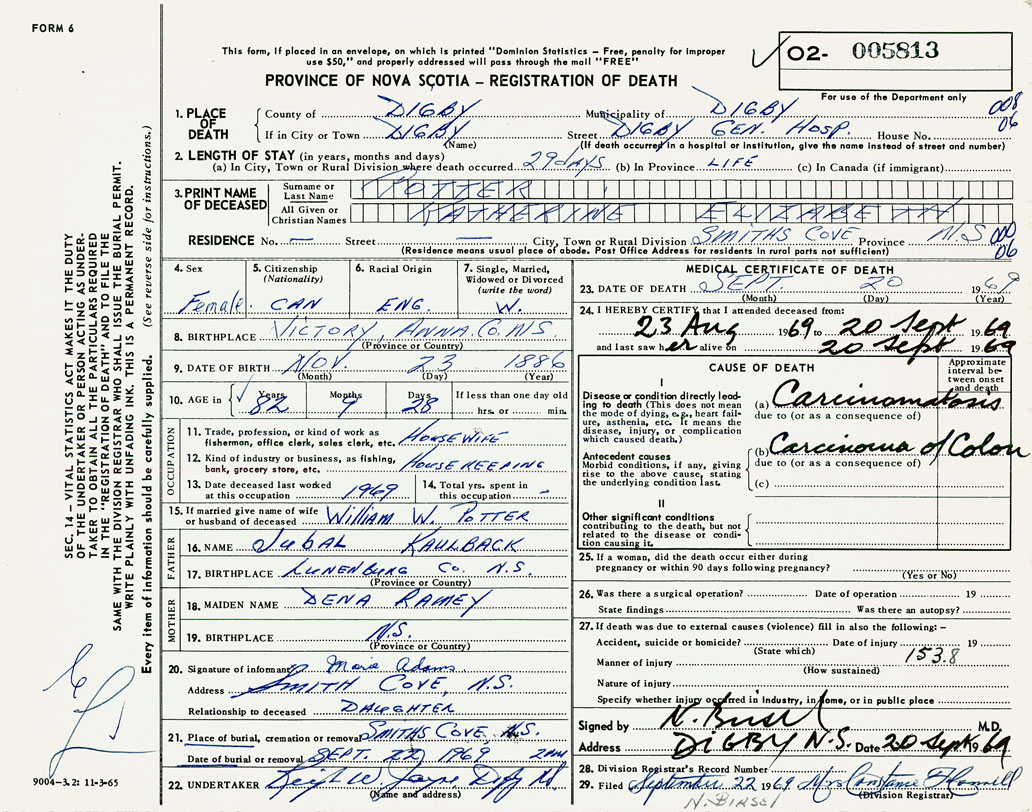 FORM 6
This form, if placed in an envelope, on which is printed "Dominion Statistics – Free, penalty for improper
use $50," and properly addressed will pass through the mail "FREE"
PROVINCE OF NOVA SCOTIA – REGISTRATION OF DEATH
02- 005813
For use of the Department only
008
06
1. PLACE OF DEATH
County of DIGBY Municipality of DIGBY
If in City or Town DIGBY Street DIGBY GEN. HOSP. House No.
(Name) (If death occurred in a hospital or Institution, give the name instead of street and number)
2. LENGTH OF STAY (in years, months and days)
(a) In City, Town or Rural Division where death occurred 29 days (b) In Province LIFE (c) In Canada (if immigrant)
3. PRINT NAME OF DECEASED
Surname or Last Name POTTER
All Given or Christian Names KATHERINE ELIZABETH
RESIDENCE No. — Street — City, Town or Rural Division SMITHS COVE Province N.S
(Residence means usual place of abode. Post Office Address for residents in rural parts not sufficient)
000
06
4. Sex
Female.
5. Citizenship
(Nationality)
CAN
6. Racial Origin
ENG.
7. Single, Married,
Widowed or Divorced
(write the word)
W.
8. BIRTHPLACE VICTORY, ANNA. CO. N.S
(Province or Country)
9. DATE OF BIRTH NOV. 23 1886
(Month) (Day) (Year)
10. AGE in Years Months Days If less than one day old
82 9 28 hrs. or min.
OCCUPATION
11. Trade, profession or kind of work as
fisherman, office clerk, sales clerk, etc. HOUSEWIFE
12. Kind of industry or business, as fishing,
bank, grocery store, etc. HOUSEKEEPING
13. Date deceased last worked
at this occupation 1969
14. Total yrs. spent in
this occupation –
15. If married give name of wife
or husband of deceased William W. POTTER
FATHER
16. NAME JUBAL KAULBACK
17. BIRTHPLACE LUNENBURG Co. N.S.
(Province or Country)
MOTHER
18. MAIDEN NAME DENA RAMEY
19. BIRTHPLACE N.S.
(Province or Country)
20. Signature of informant Marie Adams
Address SMITH COVE, N.S.
Relationship to deceased DAUGHTER
21. Place of burial, cremation or removal SMITHS COVE N.S.
Date of burial or removal SEPT. 22 1969 2PM
22. UNDERTAKER
(Name and address)
MEDICAL CERTIFICATE OF DEATH
23. DATE OF DEATH SEPT. 20 1969
(Month) (Day) (Year)
24. I HEREBY CERTIFY that I attended deceased from:
23 Aug 1969 to 20 Sept 1969
and last saw her alive on 20 Sept 1969
CAUSE OF DEATH
Approximate
interval be-
tween onset
and death
I
Disease or condition directly lead-
ing to death (This does not mean
the mode of dying, e.g., heart fail-
ure, asthenia, etc. It means the
disease, injury, or complication
which caused death.)
(a) Carcinomatosis
due to (or as a consequence of)
Antecedent causes
Morbid conditions, if any, giving
rise to the above cause, stating
the underlying condition last.
(b) Carcinoma of Colon
due to (or as a consequence of)
(c)
II
Other significant conditions
contributing to the death, but not
related to the disease or condi-
tion causing it.
25. If a woman, did the death occur either during
pregnancy or within 90 days following pregnancy?
(Yes or No)
26. Was there a surgical operation? Date of operation 19
State findings Was there an autopsy?
27. If death was due to external causes (violence) fill in also the following: –
Accident, suicide or homicide? Date of injury 19
(State which)
153.8
Manner of injury
(How sustained)
Nature of injury
Specify whether injury occurred in industry, in home, or in public place
Signed by M.D.
Address DIGBY N.S. Date 20 Sept 1969
28. Division Registrar's Record Number
29. Filed September 22 1969 Mrs Constance
(Division Registrar)
SEC. 14 – VITAL STATISTICS ACT MAKES IT THE DUTY
OF THE UNDERTAKER OR PERSON ACTING AS UNDER-
TAKER TO OBTAIN ALL THE PARTICULARS REQUIRED
IN THE "REGISTRATION OF DEATH" AND TO FILE THE
SAME WITH THE DIVISION REGISTRAR WHO SHALL ISSUE THE BURIAL PERMIT.
WRITE PLAINLY WITH UNFADING INK. THIS IS A PERMANENT RECORD.
Every item of information should be carefully supplied. (See reverse side for instructions.)
9004–3.2: 11-3-65